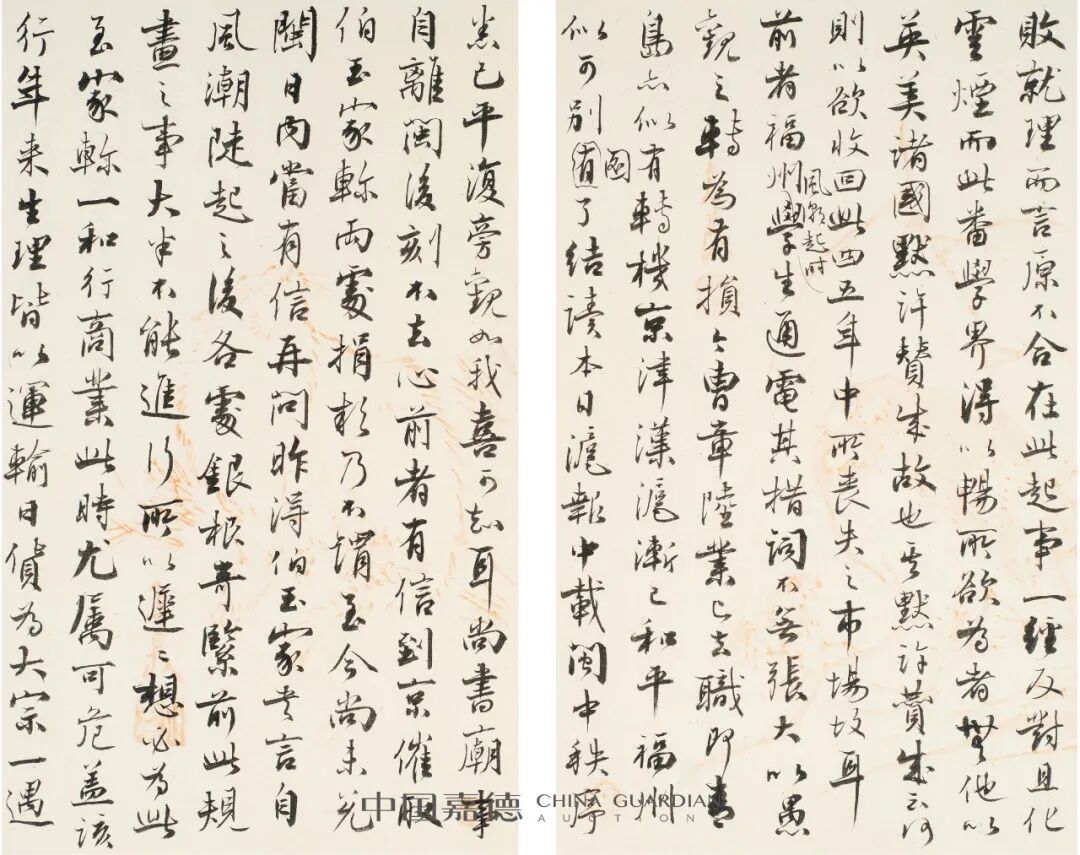 敗就理而言原不合在此起事一經反對且化
雲煙而此番學界得以暢所欲為者無他以
英美諸國默許贊成故也其默許贊成云何
則以欲收回此四五年中所喪失之市場故耳
前者福州風潮起時學生通電其措詞不無張大以愚
觀之轉為有損今曹章陸業已去職即青
島亦似有轉機京津漢滬漸已和平福州
似可別有圖了結讀本日滬報中載閩中秩序
悉已平復旁觀如我喜可知耳尚書廟事
自離閩後刻不去心前者有信到京催取
伯玉家軫兩處捐款乃不謂至今尚未兌
閩日內當有信再問昨得伯玉家書言自
風潮陡起之後各處銀根奇緊前此規
畫之事大半不能進行所以遲遲想必為此
至家軫一和行商業此時尤屬可危蓋該
行年來生理皆以運輸日貨為大宗一遇
中国嘉德 CHINA GUARDIAN
AUCTION